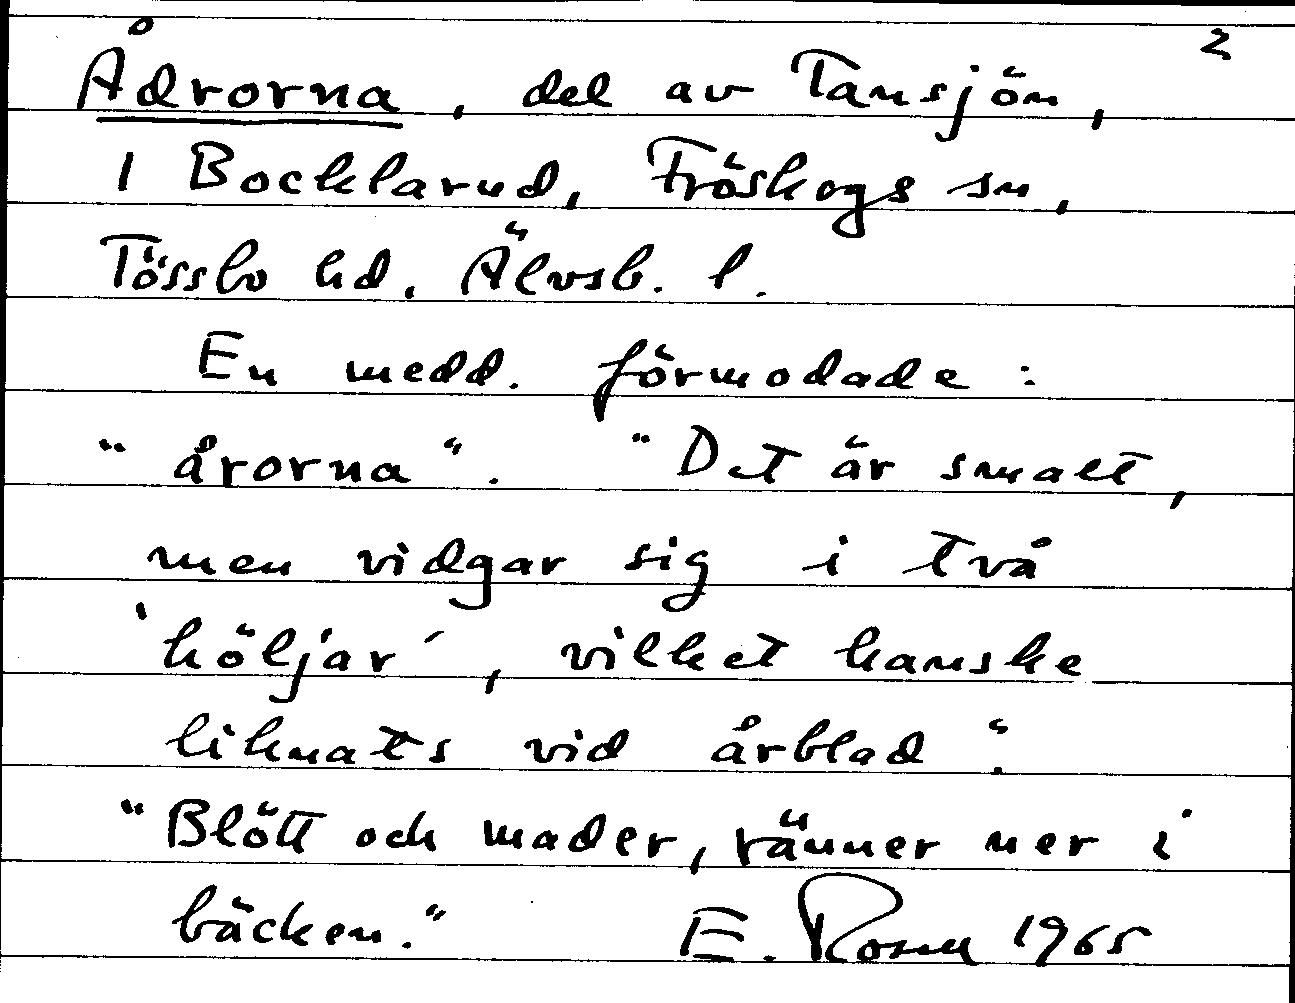 2
Ådrorna, del av Tansjön,
i Bocklarud, Fröskogs sn,
Tössbo hd. Älvsb. l.
En medd. förmodade:
"årorna". "Det är smalt,
men vidgar sig i två
'höljar', vilket kanske
liknats vid årblad".
"Blött och mader, ränner ner i
bäcken." E. Rosell 1965